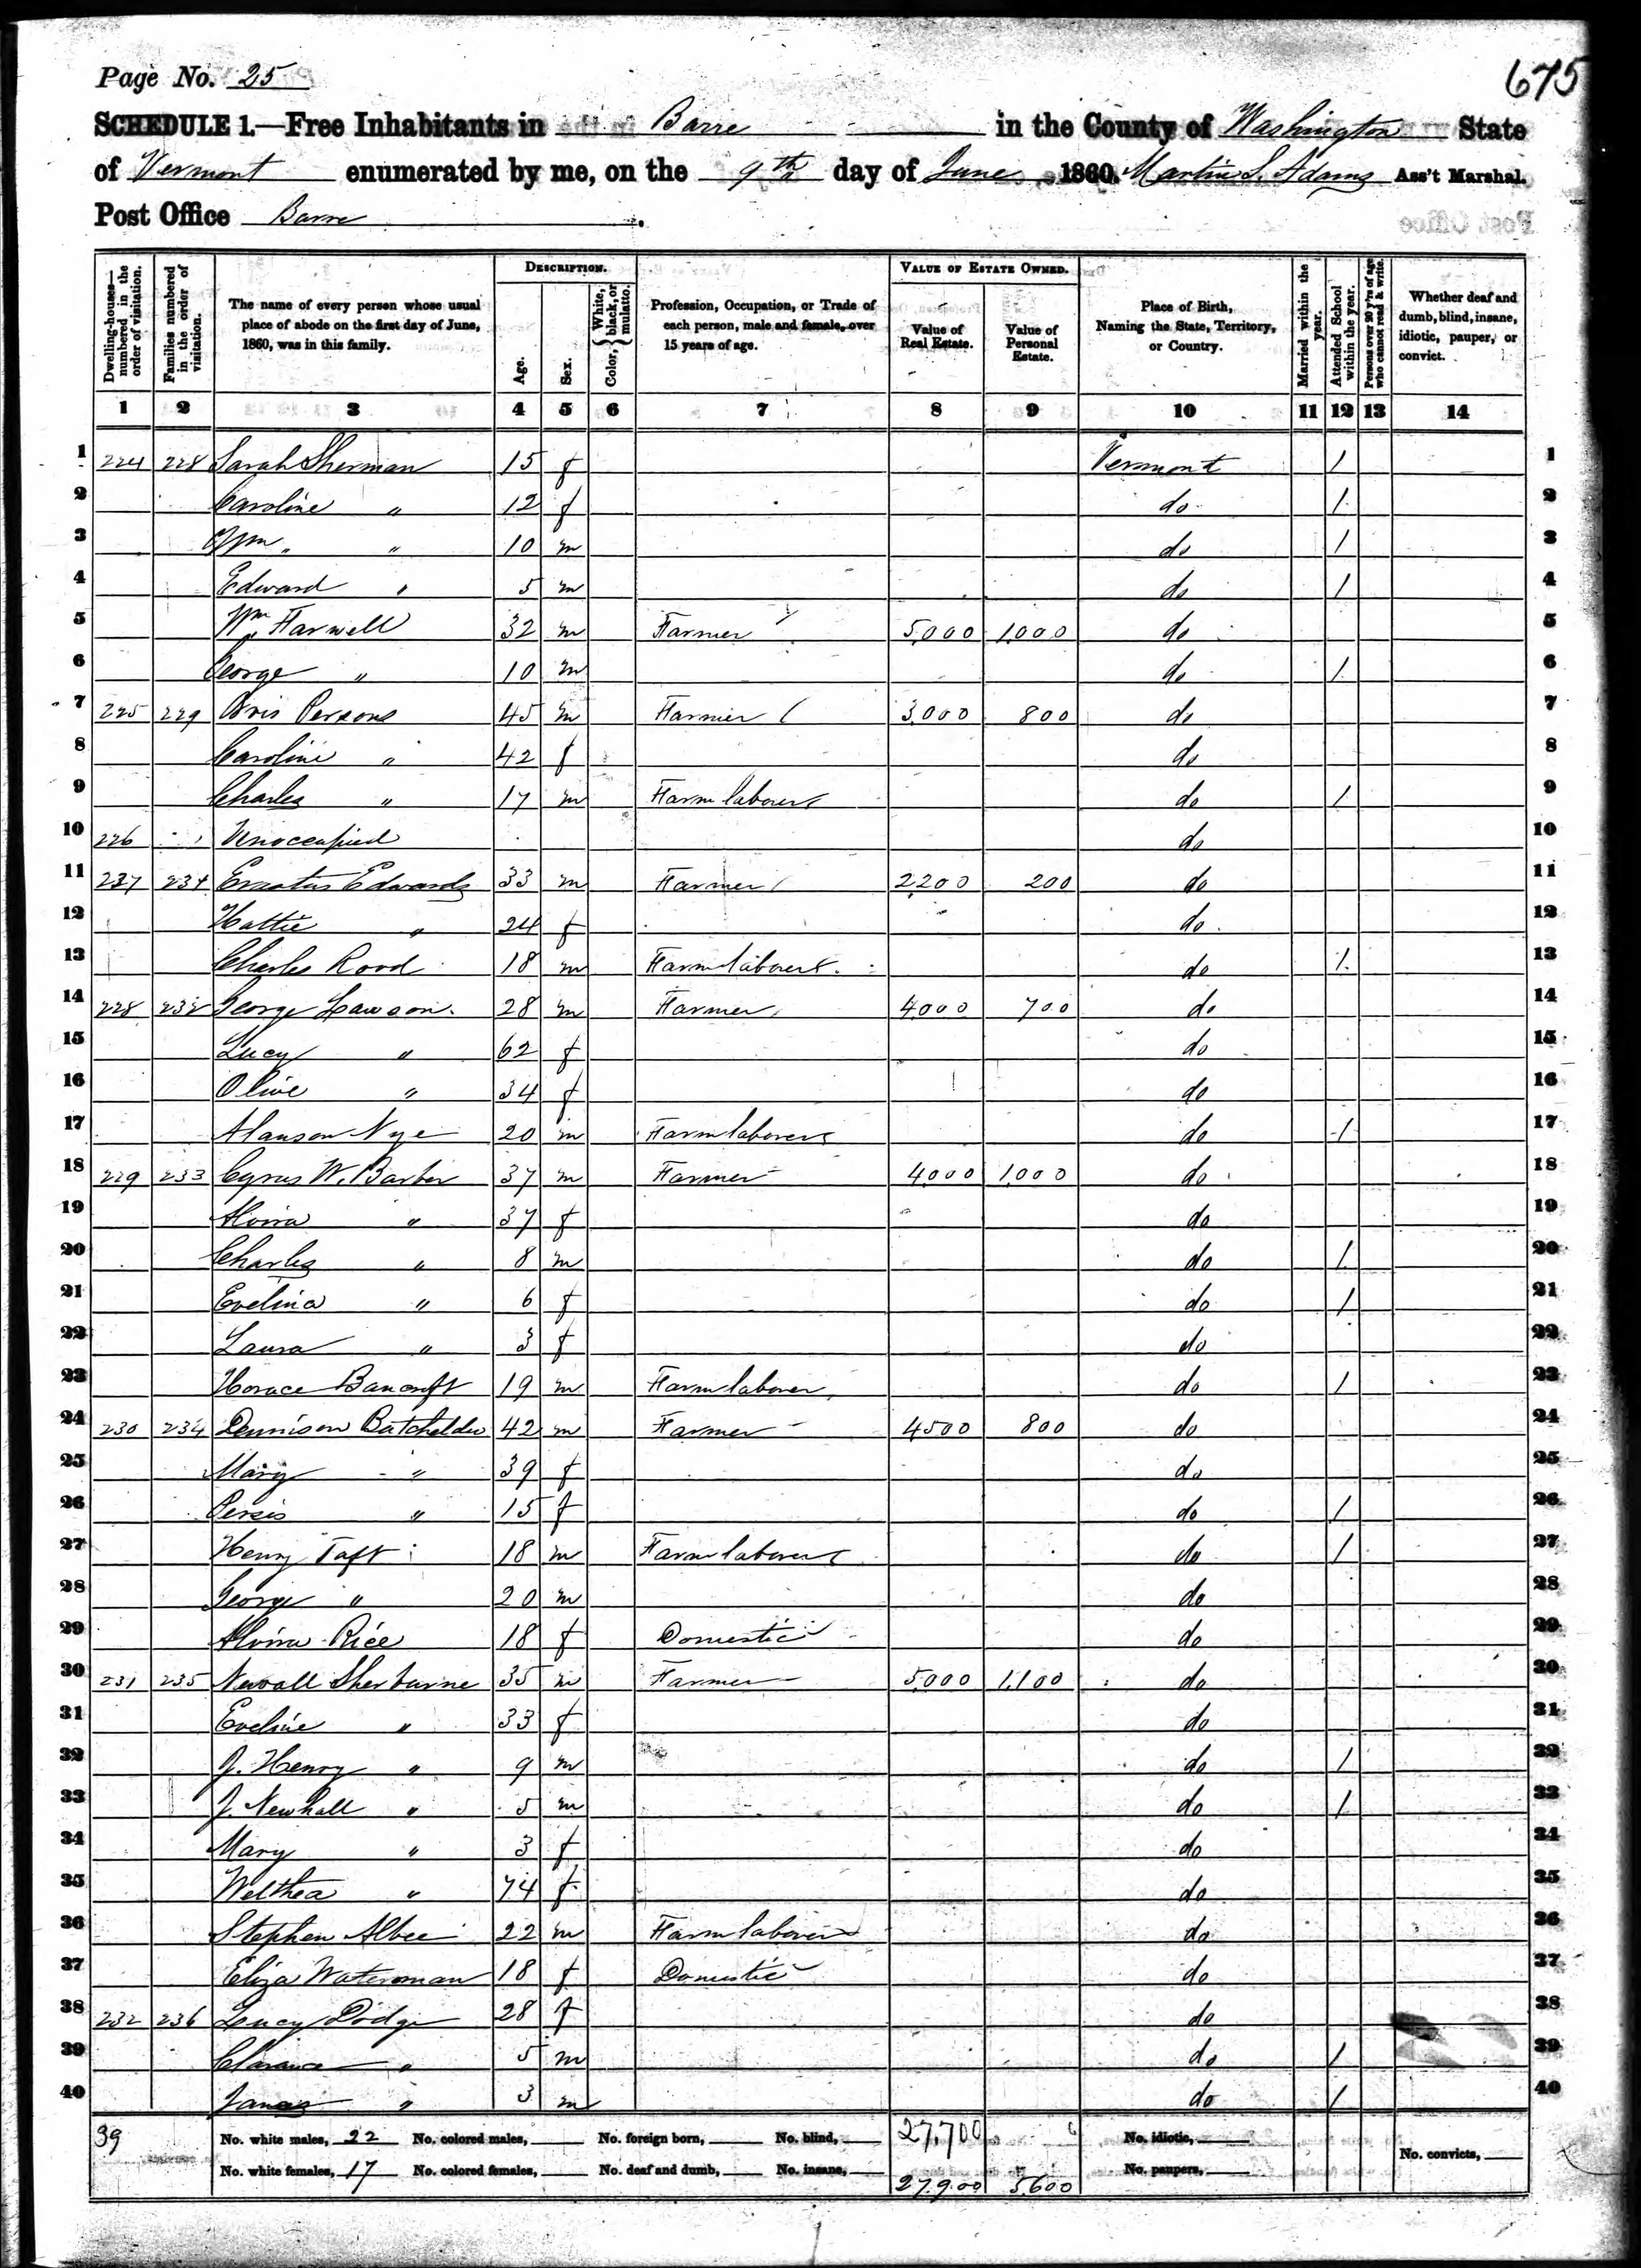 Page No. 25
675
SCHEDULE 1.—Free Inhabitants in Barre in the County of Washington State
of Vermont enumerated by me, on the 9th day of June 1860. Martin S. Adams Ass't Marshal.
Post Office Barre.
Dwelling-houses—numbered in the order of visitation. Families numbered in the order of visitation. The name of every person whose usual place of abode on the first day of June, 1860, was in this family. DESCRIPTION. Age. Sex. Color, White, black, or mulatto. Profession, Occupation, or Trade of each person, male and female, over 15 years of age. VALUE OF ESTATE OWNED. Value of Real Estate. Value of Personal Estate. Place of Birth, Naming the State, Territory, or Country. Married within the year. Attended School within the year. Persons over 20 y'rs of age who cannot read & write. Whether deaf and dumb, blind, insane, idiotic, pauper, or convict.
1 2 3 4 5 6 7 8 9 10 11 12 13 14
1 224 228 Sarah Sherman 15 f Vermont / 1
2 Caroline " 12 f do / 2
3 Wm. " 10 m do / 3
4 Edward " 5 m do / 4
5 Wm Farwell 32 m Farmer 5,000 1,000 do 5
6 George " 10 m do / 6
7 225 229 Persons 45 m Farmer 3,000 800 do 7
8 Caroline " 42 f do 8
9 Charles " 17 m Farm laborer do / 9
10 226 Unoccupied do 10
11 Erastus Edwards 33 m Farmer 2,200 200 do 11
12 Hattie " 24 f do 12
13 Charles Rood 18 m Farm laborer do / 13
14 228 232 George Lawson 28 m Farmer 4,000 700 do 14
15 Lucy " 62 f do 15
16 Olive " 34 f do 16
17 Alanson Nye 20 m Farm laborer do / 17
18 229 233 Cyrus W. Barber 37 m Farmer 4,000 1,000 do 18
19 " 37 f do 19
20 Charles " 8 m do / 20
21 Evelina " 6 f do / 21
22 Laura " 3 f do 22
23 Horace Bancroft 19 m Farm laborer do / 23
24 230 234 Dennison Batchelder 42 m Farmer 4500 800 do 24
25 Mary " 39 f do 25
26 Persis " 15 f do / 26
27 Henry Taft 18 m Farm laborer do / 27
28 George " 20 m do 28
29 Rice 18 f Domestic do 29
30 231 235 Newall Sherburne 35 m Farmer 5,000 1,100 do 30
31 Eveline " 33 f do 31
32 J. Henry " 9 m do / 32
33 J. Newhall " 5 m do / 33
34 Mary " 3 f do 34
35 Welthea " 74 f do 35
36 Stephen Albee 22 m Farm laborer do 36
37 Eliza Waterman 18 f Domestic do 37
38 232 236 Lucy Dodge 28 f do 38
39 Clarance " 5 m do / 39
40 James " 3 m do / 40
39 No. white males, 22 No. colored males, No. foreign born, No. blind, 27,700 No. idiotic,
No. white females, 17 No. colored females, No. deaf and dumb, No. insane, 27,900 5,600 No. paupers, No. convicts,